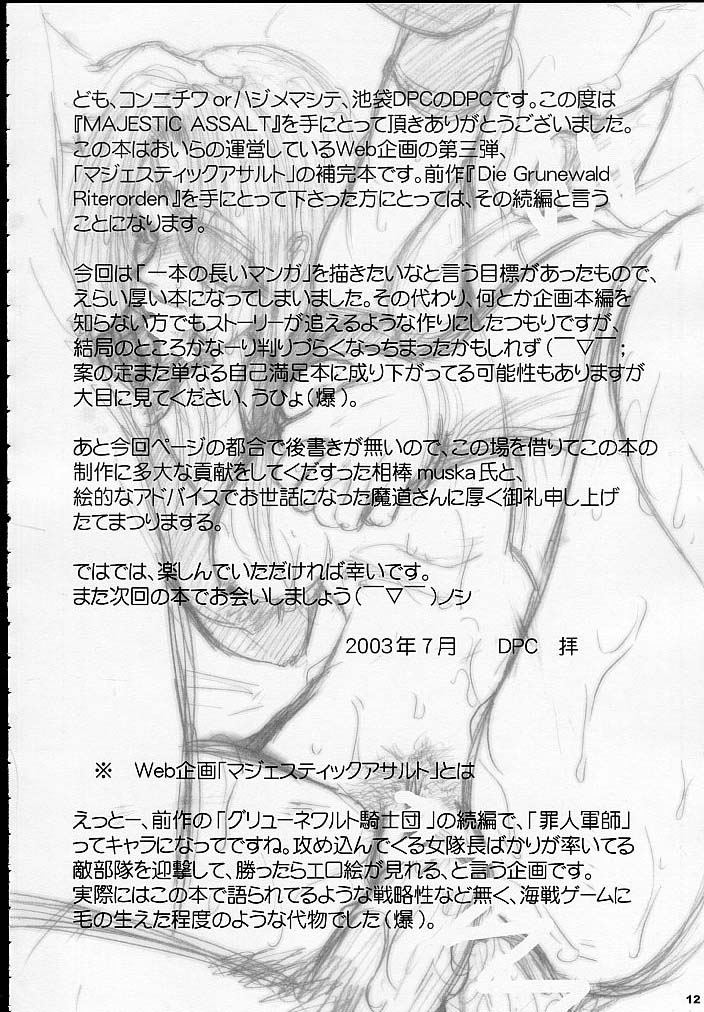 ども、コンニチワorハジメマシテ、池袋DPCのDPCです。この度は
『MAJESTIC ASSALT』を手にとって頂きありがとうございました。
この本はおいらの運営しているWeb企画の第三弾、
「マジェスティックアサルト」の補完本です。前作『Die Grunewald
Riterorden』を手にとって下さった方にとっては、その続編と言う
ことになります。
今回は「一本の長いマンガ」を描きたいなと言う目標があったもので、
えらい厚い本になってしまいました。その代わり、何とか企画本編を
知らない方でもストーリーが追えるような作りにしたつもりですが、
結局のところかなーり判りづらくなっちまったかもしれず(￣▽￣;
案の定また単なる自己満足本に成り下がってる可能性もありますが
大目に見てください、うひょ(爆)。
あと今回ページの都合で後書きが無いので、この場を借りてこの本の
制作に多大な貢献をしてくだすった相棒muska氏と、
絵的なアドバイスでお世話になった魔道さんに厚く御礼申し上げ
たてまつりまする。
ではでは、楽しんでいただければ幸いです。
また次回の本でお会いしましょう(￣▽￣)ノシ
2003年7月 DPC 拝
※ Web企画「マジェスティックアサルト」とは
えっとー、前作の「グリューネワルト騎士団」の続編で、「罪人軍師」
ってキャラになってですね。攻め込んでくる女隊長ばかりが率いてる
敵部隊を迎撃して、勝ったらエロ絵が見れる、と言う企画です。
実際にはこの本で語られてるような戦略性など無く、海戦ゲームに
毛の生えた程度のような代物でした(爆)。
12